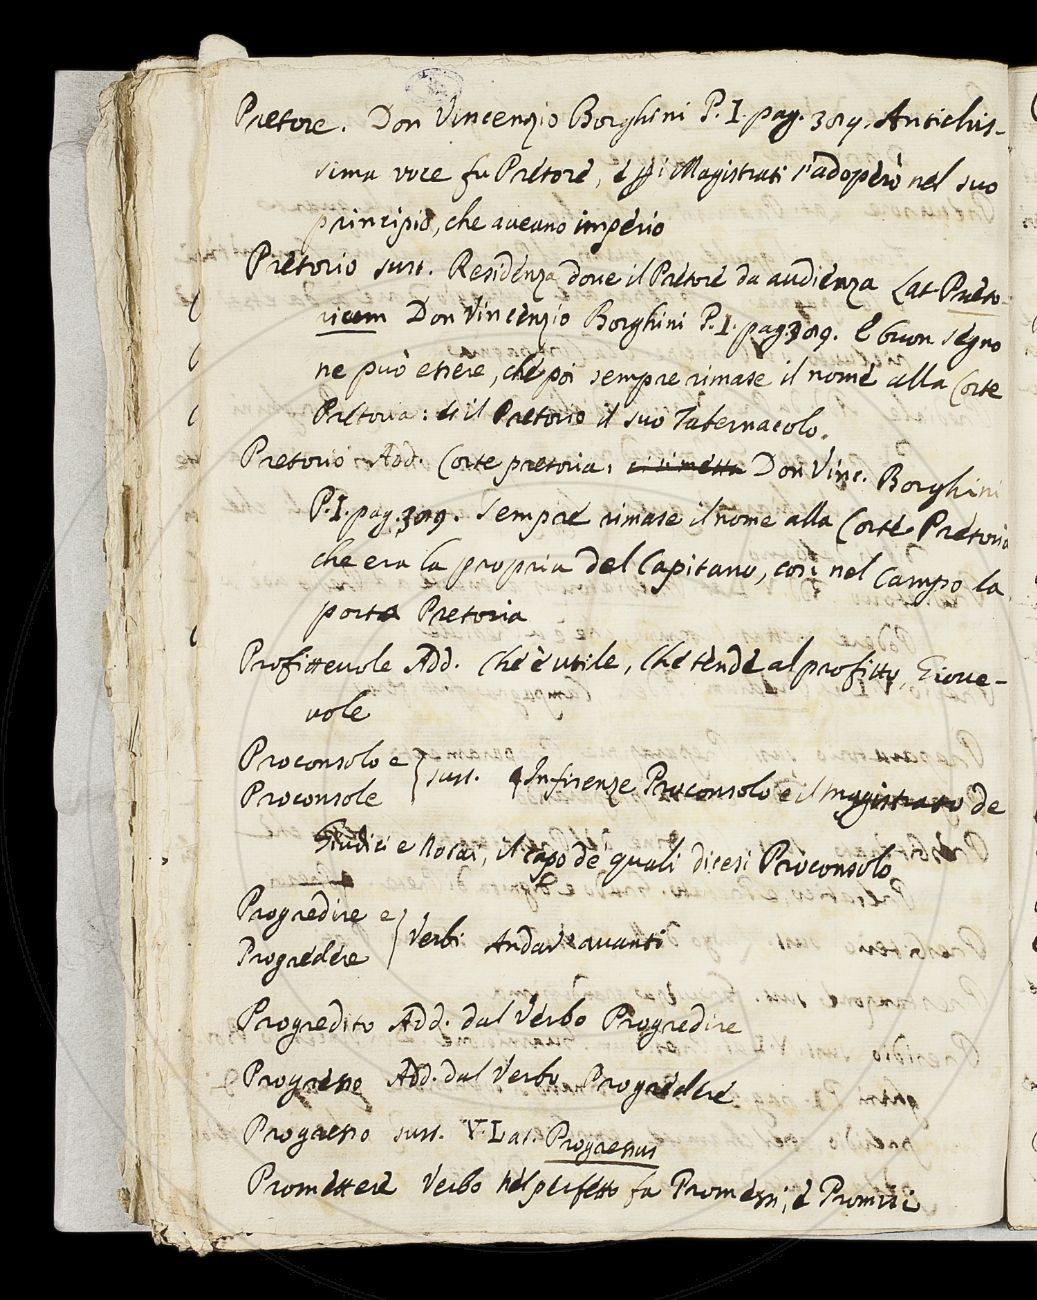 Pretore. Don Vincenzio Borghini P. I. pag. 309. Antichis-
sima voce fu Pretore, e Magistrati s'adoperò nel suo
principio, che aveano império
Pretorio sust. Residénza dove il Pretore da audiénza Lat Præto-
rium Don Vincénzio Borghini P. I. pag. 309. E buon ségno
ne può essere, che poi sempre rimase il nome alla Corte
Pretoria: et il Pretorio il suo Tabernacolo.
Pretorio Add. Corte pretoria, Don Vinc. Borghini
P. I. pag. 309. Sempre rimase il nome alla Corte Pretoria
che era la propria del Capitano, così nel Campo la
porta Pretoria
Profittevole Add. Che è utile, Che tende al profitto, Giove-
vole
Proconsolo e
Proconsole } sust. In firenze Proconsolo e il magistrato de
Giudici e Notai, il capo de quali dicesi Proconsolo
Progredire e
Progrédére } Verbi Andare avanti
Progredito Add. dal Verbo Progredire
Progresso Add. dal Verbo Progrédere
Progresso sust. V. Lat. Progressus
Prométtere Verbo nel perfetto fa Promessi, e Promisi